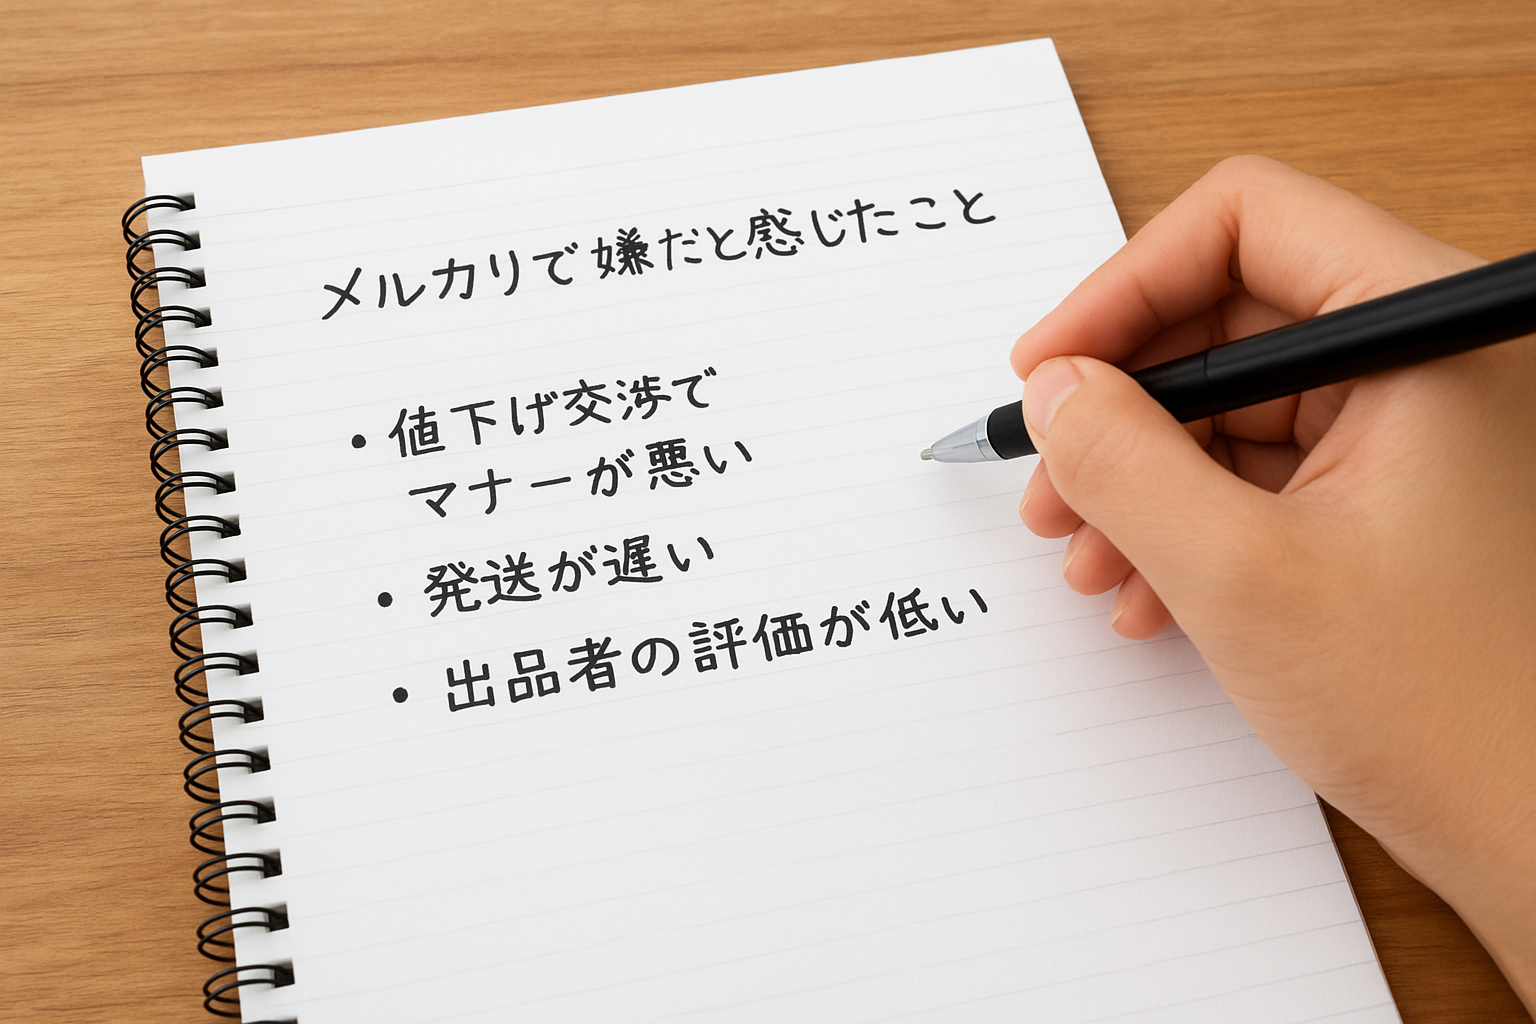 メルカリで嫌だと感じたこと
・値下げ交渉で
マナーが悪い
・発送が遅い
・出品者の評価が低い